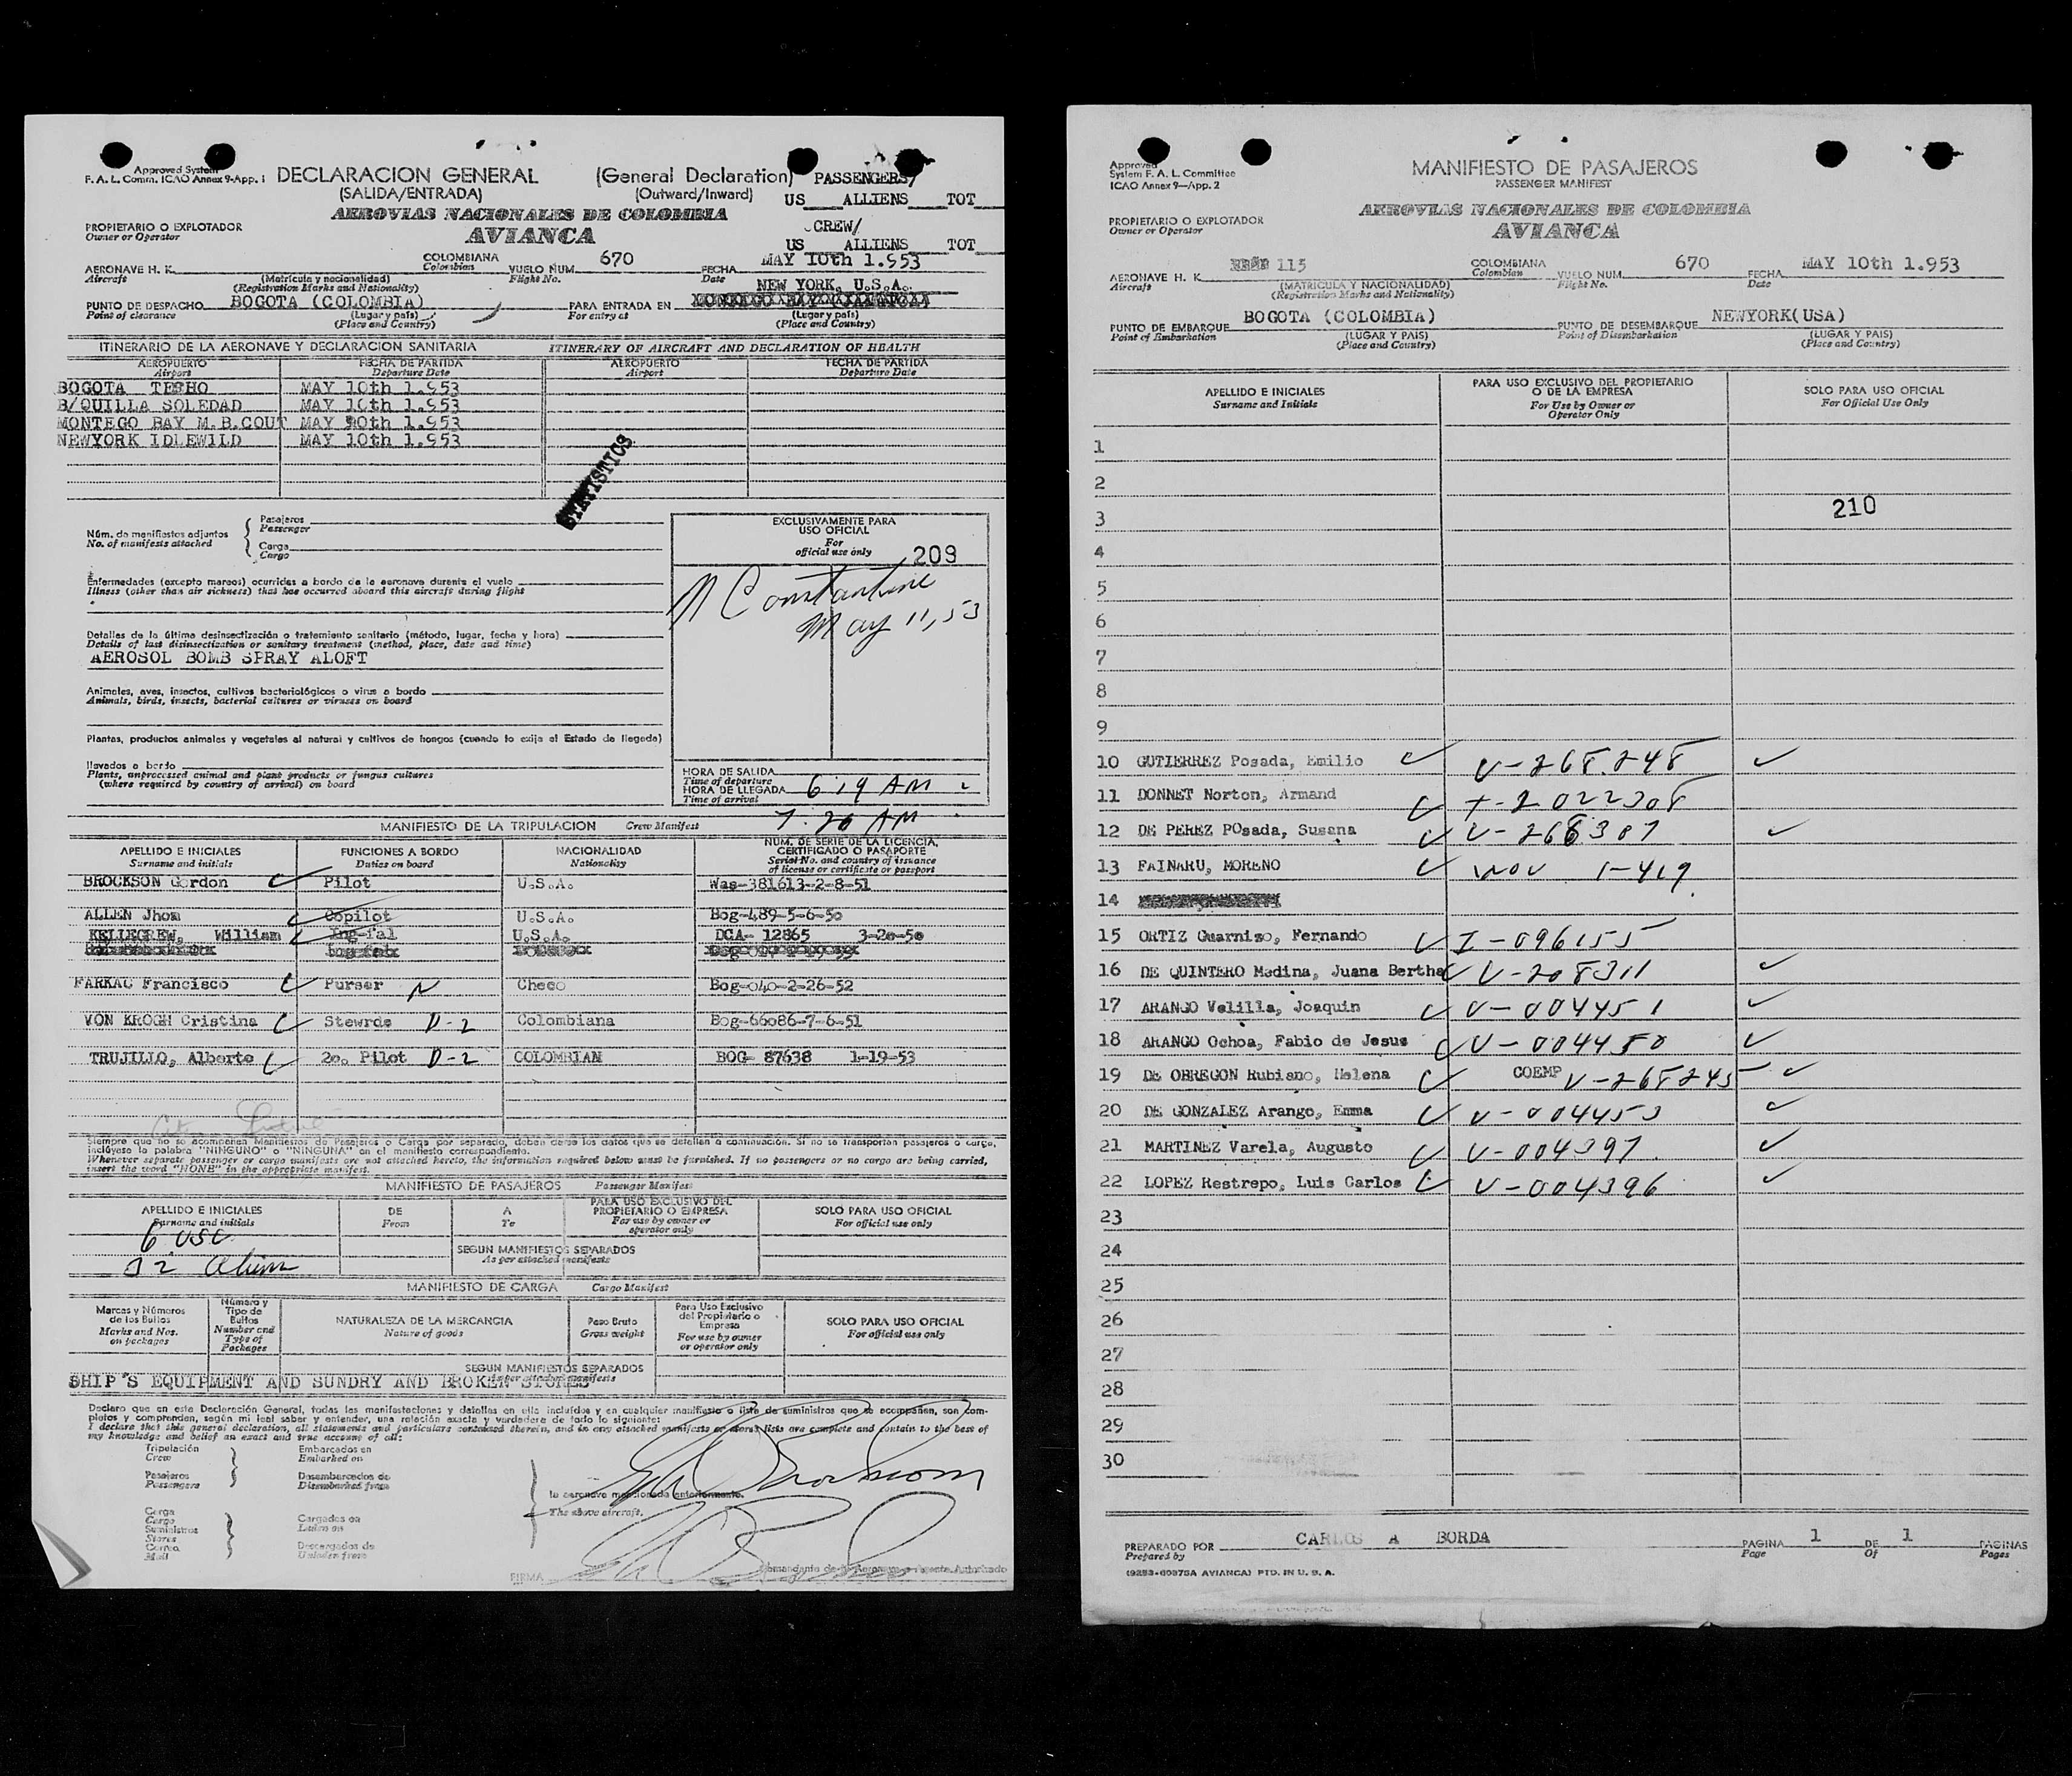 Approved System
F. A. L. Comm. ICAO Annex 9-App. 1
DECLARACION GENERAL (General Declaration) PASSENGERS/
(SALIDA/ENTRADA) (Outward/Inward) US ALLIENS TOT
AEROVIAS NACIONALES DE COLOMBIA
PROPIETARIO O EXPLOTADOR
Owner or Operator
AVIANCA
CREW/
US ALLIENS TOT
AERONAVE H. K. COLOMBIANA VUELO NUM. 670 FECHA MAY 10th 1.953
Aircraft (Matrícula y nacionalidad) Colombian Flight No. Date
(Registration Marks and Nationality)
PUNTO DE DESPACHO BOGOTA (COLOMBIA) PARA ENTRADA EN NEW YORK, U.S.A.
Point of clearance (Lugar y país) For entry at (Lugar y país)
(Place and Country) (Place and Country)
ITINERARIO DE LA AERONAVE Y DECLARACION SANITARIA ITINERARY OF AIRCRAFT AND DECLARATION OF HEALTH
AEROPUERTO FECHA DE PARTIDA AEROPUERTO FECHA DE PARTIDA
Airport Departure Date Airport Departure Date
BOGOTA TECHO MAY 10th 1.953
B/QUILLA SOLEDAD MAY 10th 1.953
MONTEGO BAY M.B.COUT MAY 10th 1.953
NEWYORK IDLEWILD MAY 10th 1.953
STATISTICS
Núm. de manifiestos adjuntos
No. of manifests attached
Pasajeros
Passenger
Carga
Cargo
EXCLUSIVAMENTE PARA
USO OFICIAL
For
official use only 209
N Constantine
May 11, 53
Enfermedades (excepto mareos) ocurridas a bordo de la aeronave durante el vuelo
Illness (other than air sickness) that has occurred aboard this aircraft during flight
Detalles de la última desinsectización o tratamiento sanitario (método, lugar, fecha y hora)
Details of last disinsectization or sanitary treatment (method, place, date and time)
AEROSOL BOMB SPRAY ALOFT
Animales, aves, insectos, cultivos bacteriológicos o virus a bordo
Animals, birds, insects, bacterial cultures or viruses on board
Plantas, productos animales y vegetales al natural y cultivos de hongos (cuando lo exija el Estado de llegada)
llevados a bordo
Plants, unprocessed animal and plant products or fungus cultures
(where required by country of arrival) on board
HORA DE SALIDA
Time of departure
HORA DE LLEGADA 6 19 AM
Time of arrival
7.20 AM
MANIFIESTO DE LA TRIPULACION Crew Manifest
APELLIDO E INICIALES FUNCIONES A BORDO NACIONALIDAD NUM. DE SERIE DE LA LICENCIA, CERTIFICADO O PASAPORTE
Surname and initials Duties on board Nationality Serial No. and country of issuance of license or certificate or passport
BROCKSON Gordon Pilot U.S.A. Was-381613-2-8-51
ALLEN Jhom Copilot U.S.A. Bog-489-5-6-50
KELLEGREW, William Ing-fal U.S.A. DCA- 12865 3-2o-5o
FARKAC Francisco Purser N Checo Bog-040-2-26-52
VON KROGH Cristina Stewrds D-2 Colombiana Bog-66086-7-6-51
TRUJILLO, Alberto 2o. Pilot D-2 COLOMBIAN BOG- 87638 1-19-53
Siempre que no se acompañen Manifiestos de Pasajeros o Carga por separado, deben darse los datos que se detallan a continuación. Si no se transportan pasajeros o carga,
inclúyase la palabra "NINGUNO" o "NINGUNA" en el manifiesto correspondiente.
Whenever separate passenger or cargo manifests are not attached hereto, the information required below must be furnished. If no passengers or no cargo are being carried,
insert the word "NONE" in the appropriate manifest.
MANIFIESTO DE PASAJEROS Passenger Manifest
APELLIDO E INICIALES DE A PARA USO EXCLUSIVO DEL PROPIETARIO O EMPRESA SOLO PARA USO OFICIAL
Surname and initials From To For use by owner or operator only For official use only
6 USC
32 Alien
SEGUN MANIFIESTOS SEPARADOS
As per attached manifests
MANIFIESTO DE CARGA Cargo Manifest
Marcas y Números de los Bultos Número y Tipo de Bultos NATURALEZA DE LA MERCANCIA Peso Bruto Para Uso Exclusivo del Propietario o Empresa SOLO PARA USO OFICIAL
Marks and Nos. on packages Number and Type of Packages Nature of goods Gross weight For use by owner or operator only For official use only
SEGUN MANIFIESTOS SEPARADOS
As per attached manifests
SHIP'S EQUIPMENT AND SUNDRY AND BROKEN STORES
Declaro que en esta Declaración General, todas las manifestaciones y detalles en ella incluídos y en cualquier manifiesto o lista de suministros que se acompañen, son completos
y comprenden, según mi leal saber y entender, una relación exacta y verdadera de todo lo siguiente:
I declare that this general declaration, all statements and particulars contained therein, and in any attached manifests or stores lists are complete and contain to the best of
my knowledge and belief an exact and true account of all:
Tripulación Embarcados en
Crew Embarked on
Pasajeros Desembarcados de
Passengers Disembarked from
la aeronave mencionada anteriormente.
The above aircraft.
Carga
Cargo Cargados en
Suministros Laden on
Stores
Correo Descargados de
Mail Unladen from
FIRMA Comandante de la Aeronave o Agente Autorizado
Approved
System F. A. L. Committee
ICAO Annex 9—App. 2
MANIFIESTO DE PASAJEROS
PASSENGER MANIFEST
AEROVIAS NACIONALES DE COLOMBIA
PROPIETARIO O EXPLOTADOR
Owner or Operator
AVIANCA
AERONAVE H. K. 115 COLOMBIANA VUELO NUM. 670 FECHA MAY 10th 1.953
Aircraft (MATRICULA Y NACIONALIDAD) Colombian Flight No. Date
(Registration Marks and Nationality)
PUNTO DE EMBARQUE BOGOTA (COLOMBIA) PUNTO DE DESEMBARQUE NEWYORK(USA)
Point of Embarkation (LUGAR Y PAIS) Point of Disembarkation (LUGAR Y PAIS)
(Place and Country) (Place and Country)
APELLIDO E INICIALES PARA USO EXCLUSIVO DEL PROPIETARIO O DE LA EMPRESA SOLO PARA USO OFICIAL
Surname and Initials For Use by Owner or Operator Only For Official Use Only
1
2
3 210
4
5
6
7
8
9
10 GUTIERREZ Posada, Emilio V-268.248
11 DONNET Norton, Armand T-2022308
12 DE PEREZ POsada, Susana V-268307
13 FAINARU, MORENO 1-419
14
15 ORTIZ Guarnizo, Fernando I-096155
16 DE QUINTERO Medina, Juana Bertha V-208311
17 ARANGO Velilla, Joaquin V-004451
18 ARANGO Ochoa, Fabio de Jesus V-004450
19 DE OBREGON Rubiano, Helena COEMP V-268245
20 DE GONZALEZ Arango, Emma V-004453
21 MARTINEZ Varela, Augusto V-004397
22 LOPEZ Restrepo, Luis Carlos V-004396
23
24
25
26
27
28
29
30
PREPARADO POR CARLOS A BORDA PAGINA 1 DE 1 PAGINAS
Prepared by Page Of Pages
(9253-60375A AVIANCA) PTD. IN U. S. A.